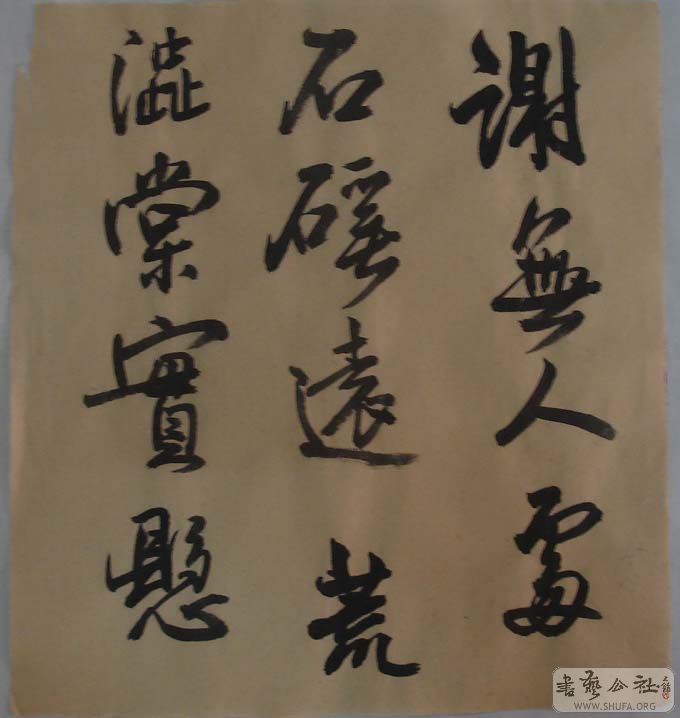 謝無人處
石遠荒
澁棠實懸
書藝公社
WWW.SHUFA.ORG